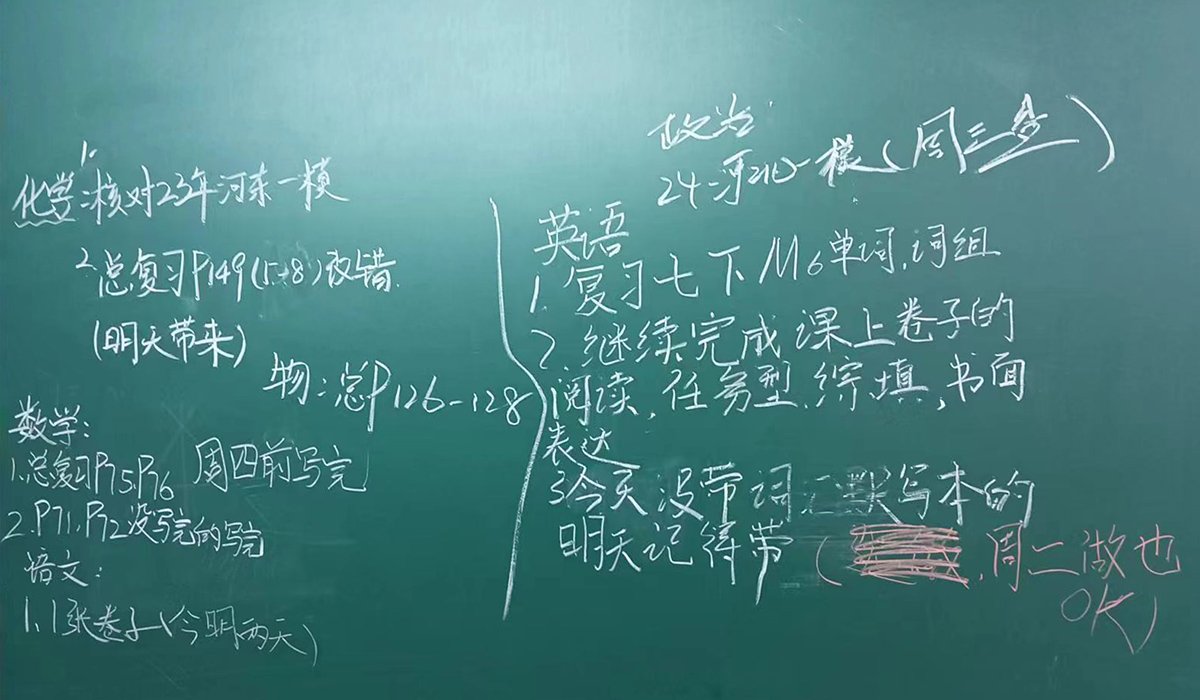 化学:1.核对23年河东一模
2.总复习P149(5→8)改错.
(明天带来)
物:总P126-128
数学:
1.总复习P75,P76 周四前写完
2.P71,P72没写完的写完
语文:
1.1张卷子(今明两天)
政治:
24河北一模(周三
英语
1.复习七下M6单词.词组
2.继续完成课上卷子的
阅读,任务型.综填,书面
表达
3今天没带词 默写本的
明天记得带
( ,周二做也
OK)